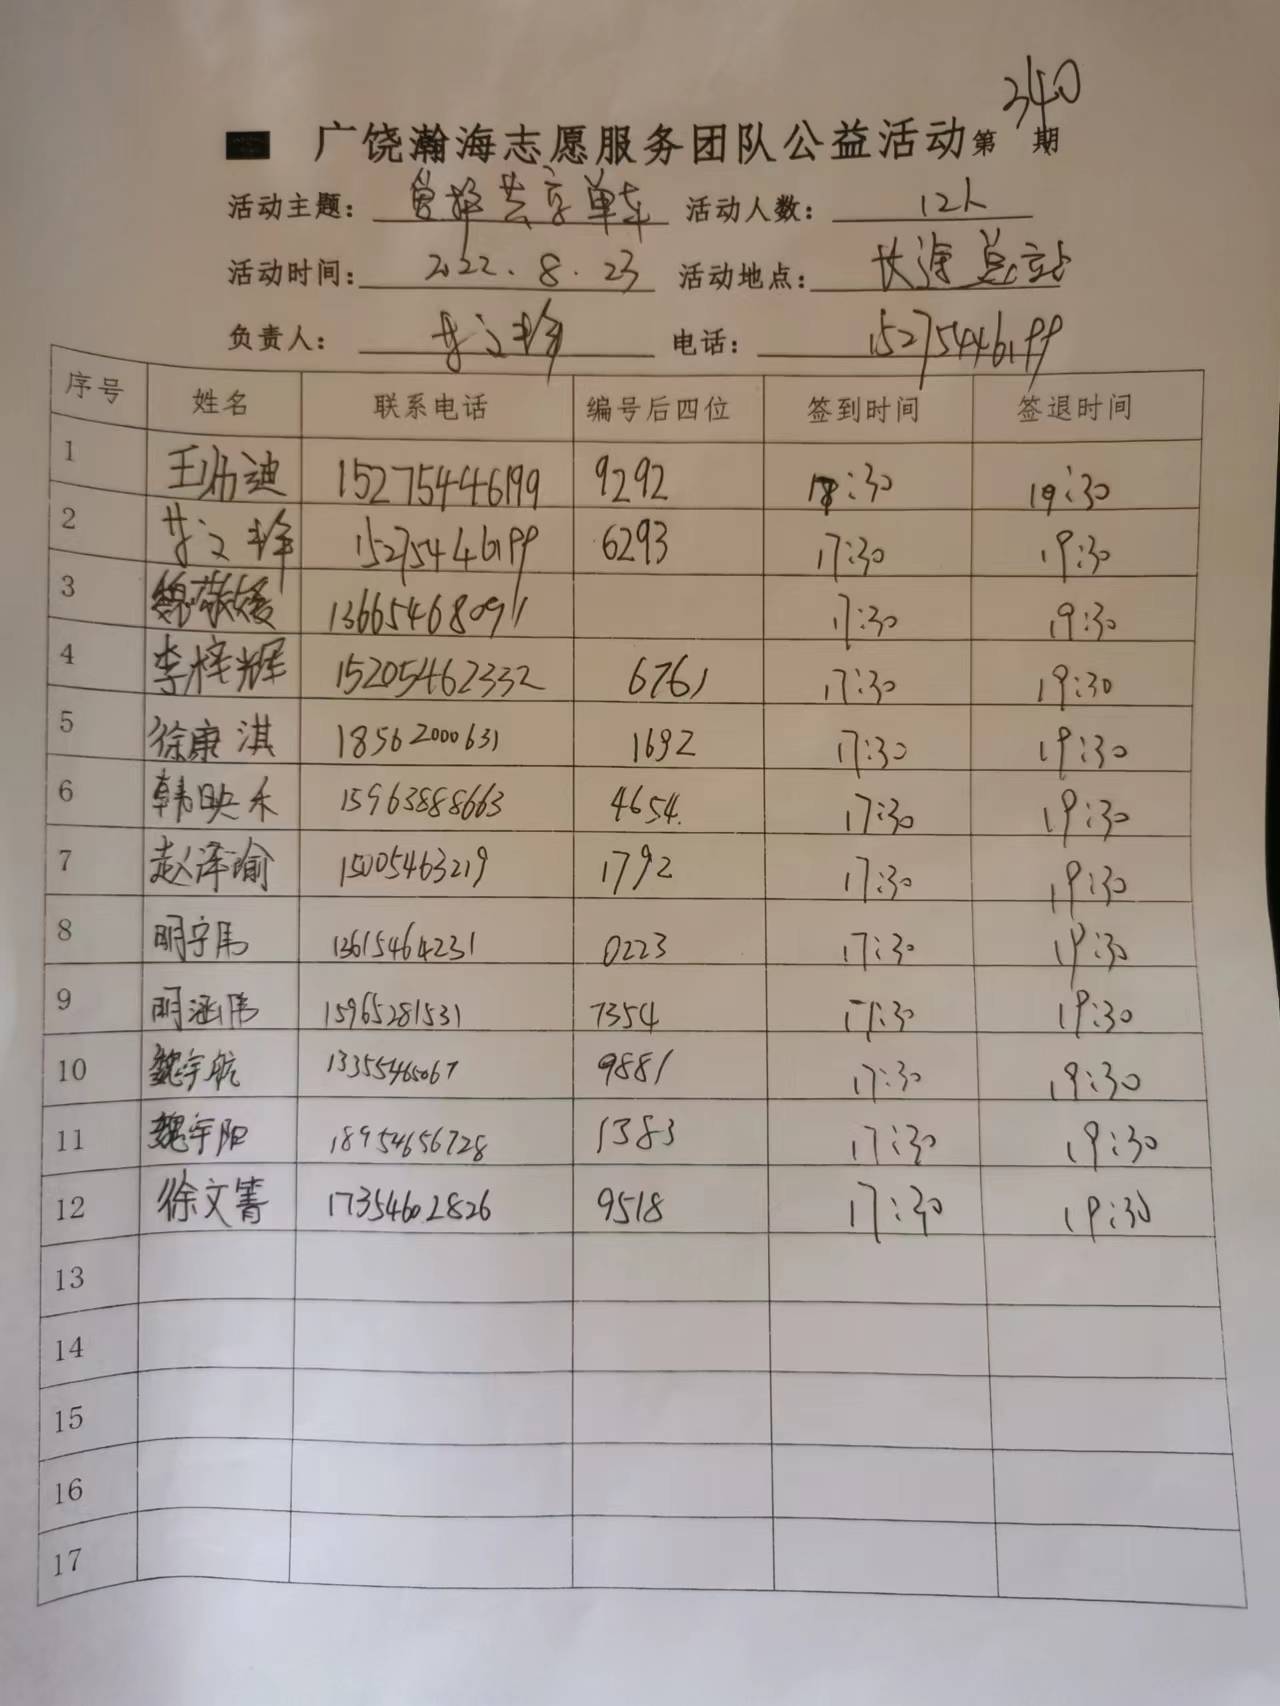 广饶瀚海志愿服务团队公益活动第340期
活动主题： 共享单车 活动人数： 12人
活动时间： 2022.8.23 活动地点： 长途总站
负责人： 电话： 15275446199
序号 姓名 联系电话 编号后四位 签到时间 签退时间
1 王 迪 15275446199 9292 17:30 19:30
2 15275446199 6293 17:30 19:30
3 魏敬媛 13665468091 17:30 19:30
4 李梓辉 15205462332 6761 17:30 19:30
5 徐康淇 18562000631 1692 17:30 19:30
6 韩映禾 15963888663 4654. 17:30 19:30
7 赵泽瑜 15005463219 1792 17:30 19:30
8 明宇伟 13615464231 0223 17:30 19:30
9 明涵伟 15965281531 7354 17:30 19:30
10 魏宇航 13355465067 9881 17:30 19:30
11 魏宇阳 18954656728 1383 17:30 19:30
12 徐文箐 17354602826 9518 17:30 19:30
13
14
15
16
17